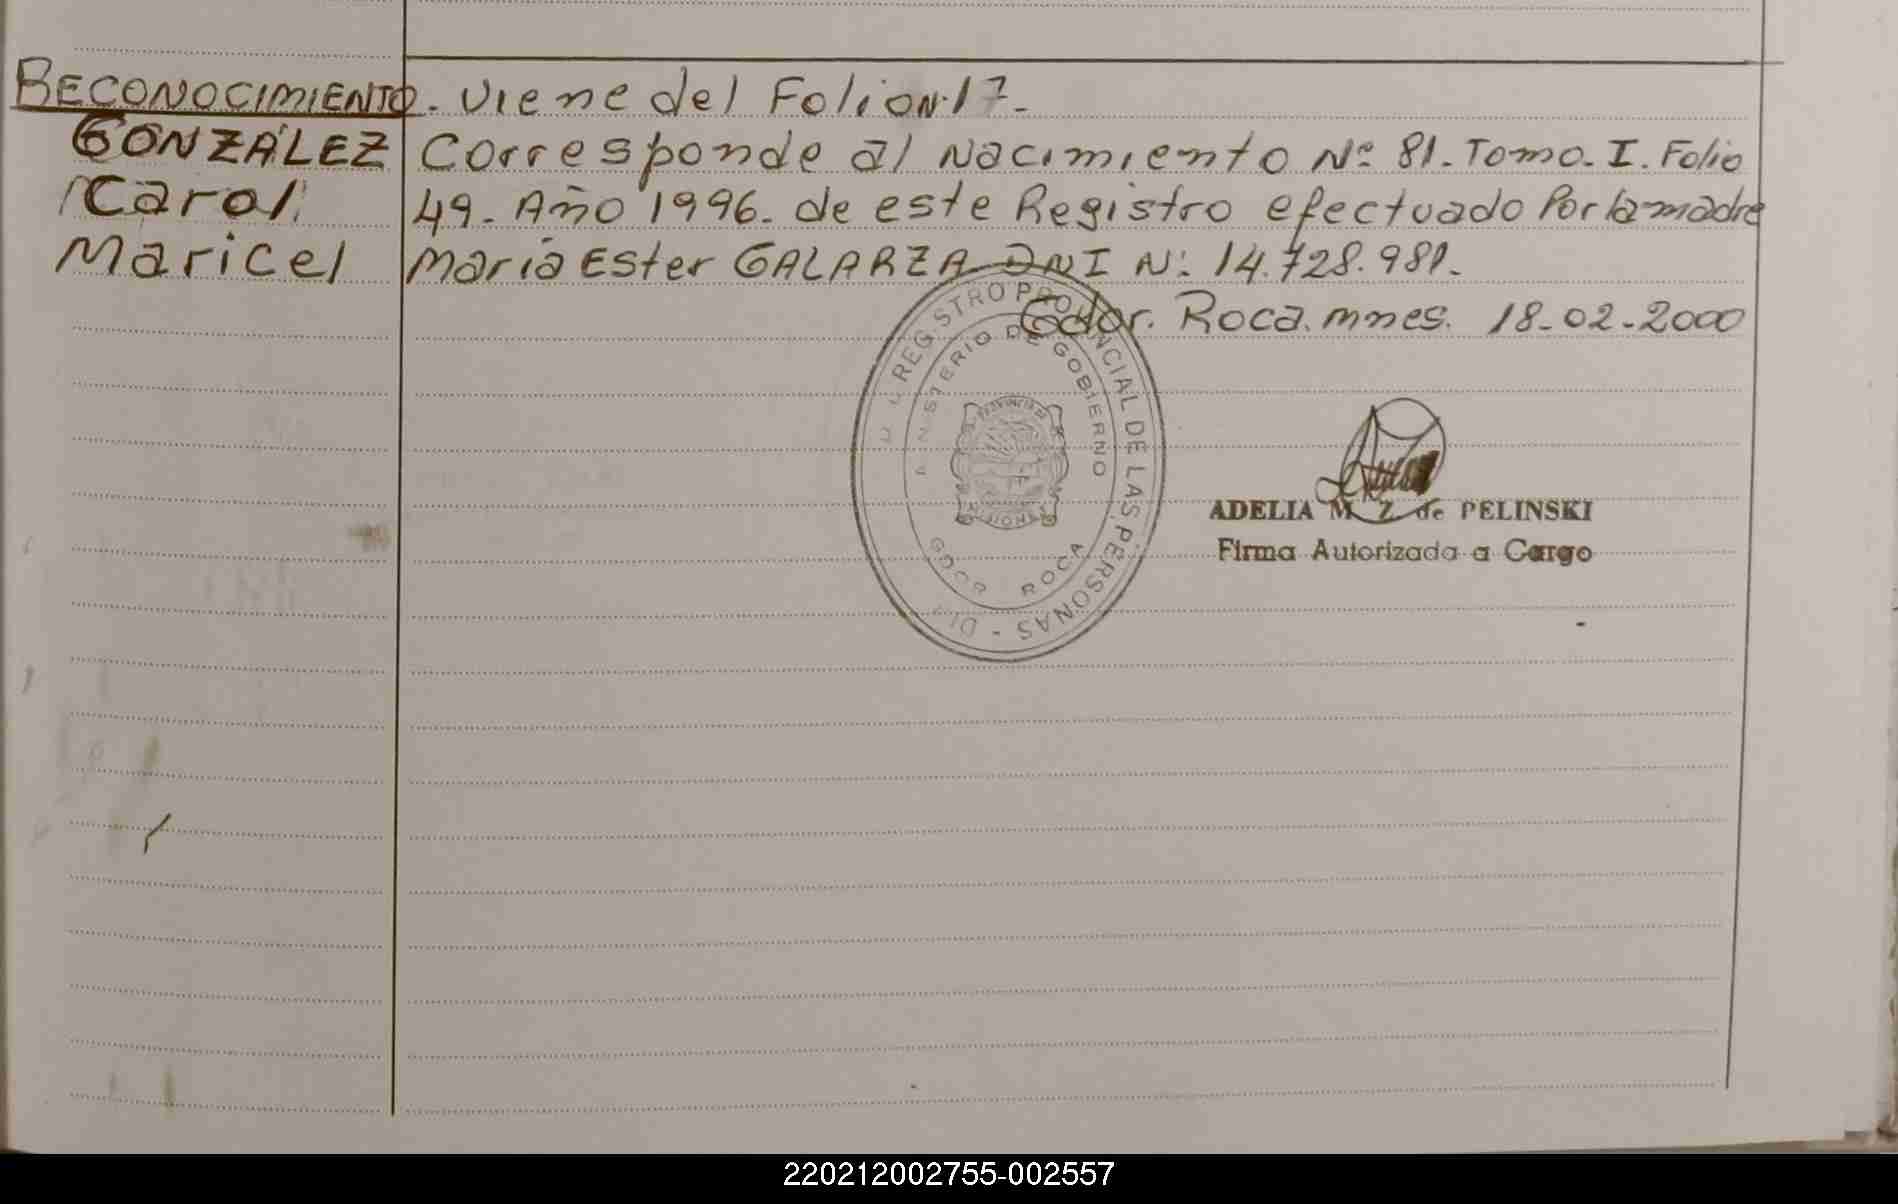 RECONOCIMIENTO. Viene del Folio N·17-
GONZÁLEZ
Carol
Maricel
Corresponde al Nacimiento Nº 81- Tomo. I. Folio
49- Año 1996. de este Registro efectuado Por la madre
María Ester GALARZA DNI N: 14.728.981.
Gdor. Roca. mnes. 18-02-2000
REGISTRO PROVINCIAL DE LAS PERSONAS -
MINISTERIO DE GOBIERNO
PROVINCIA DE
MISIONES
GDOR ROCA
ADELIA M. Z. de PELINSKI
Firma Autorizada a Cargo
220212002755-002557